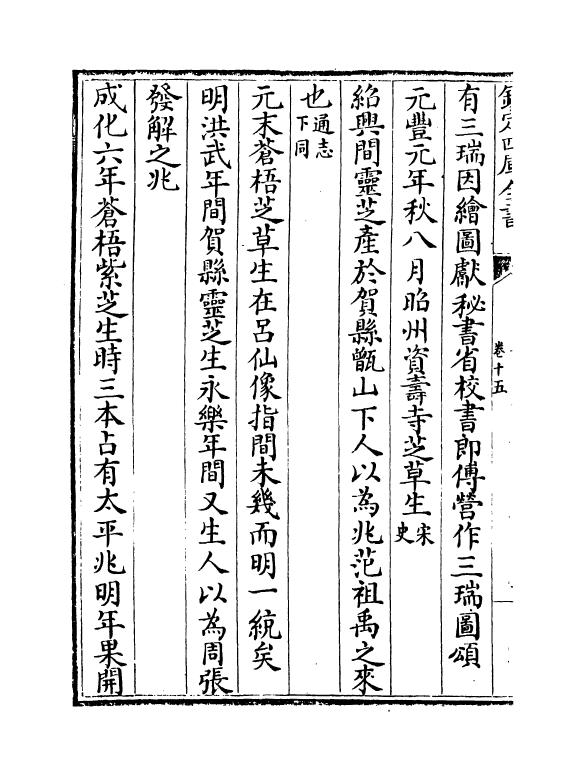 欽定四庫全書
卷十五
有三瑞因繪圖獻秘書省校書郎傅營作三瑞圖頌
元豐元年秋八月昭州資壽寺芝草生宋史
紹興間靈芝產於賀縣甑山下人以為兆范祖禹之來
也通志下同
元末蒼梧芝草生在呂仙像指間未幾而明一統矣
明洪武年間賀縣靈芝生永樂年間又生人以為周張
發解之兆
成化六年蒼梧紫芝生時三本占有太平兆明年果開